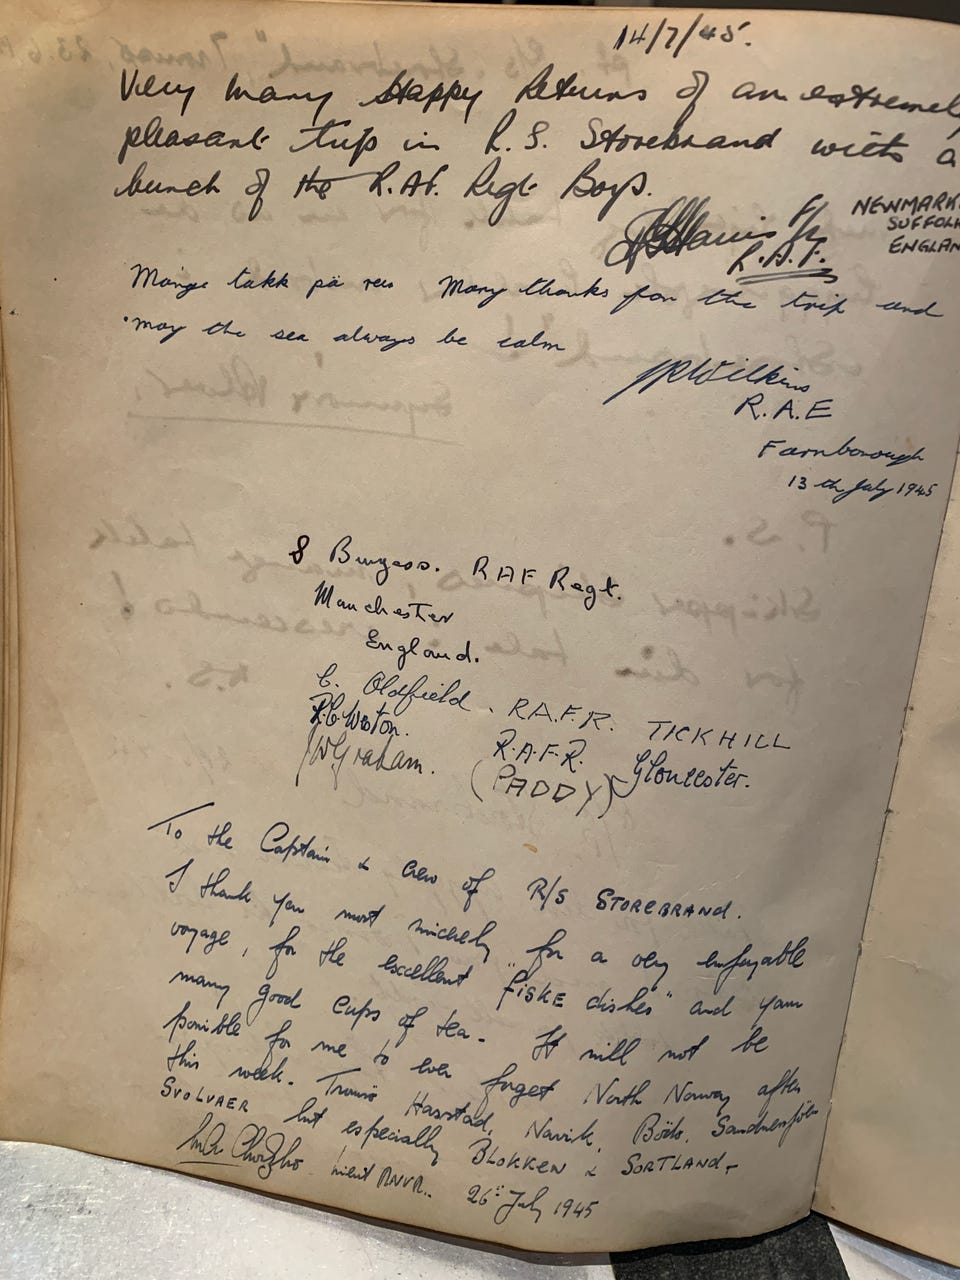 14/7/45.
Very many Happy Returns of an extremely
pleasant trip in R.S. Storebrand with a
bunch of the R.A.F. Regt Boys.
Harris F/Lt
R.A.F.
NEWMARK
SUFFOLK
ENGLAN
Mange takk på reis Many thanks for the trip and
may the sea always be calm
Wilkins
R.A.E
Farnborough
13th July 1945
S Burgess. RAF Regt.
Manchester
England.
C. Oldfield. R.A.F.R. TICKHILL
R.C. Weston. R.A.F.R. Gloucester.
Graham. (PADDY)
To the Captain & crew of R/S STOREBRAND.
I thank you most sincerely for a very enjoyable
voyage, for the excellent "FISKE dishes" and your
many good cups of tea. It will not be
possible for me to ever forget North Norway after
this week. Tromsö Harstad, Narvik, Bödo, Sandnessjöen
SVOLVAER but especially BLOKKEN & SORTLAND.
Lieut RNVR. 26: July 1945